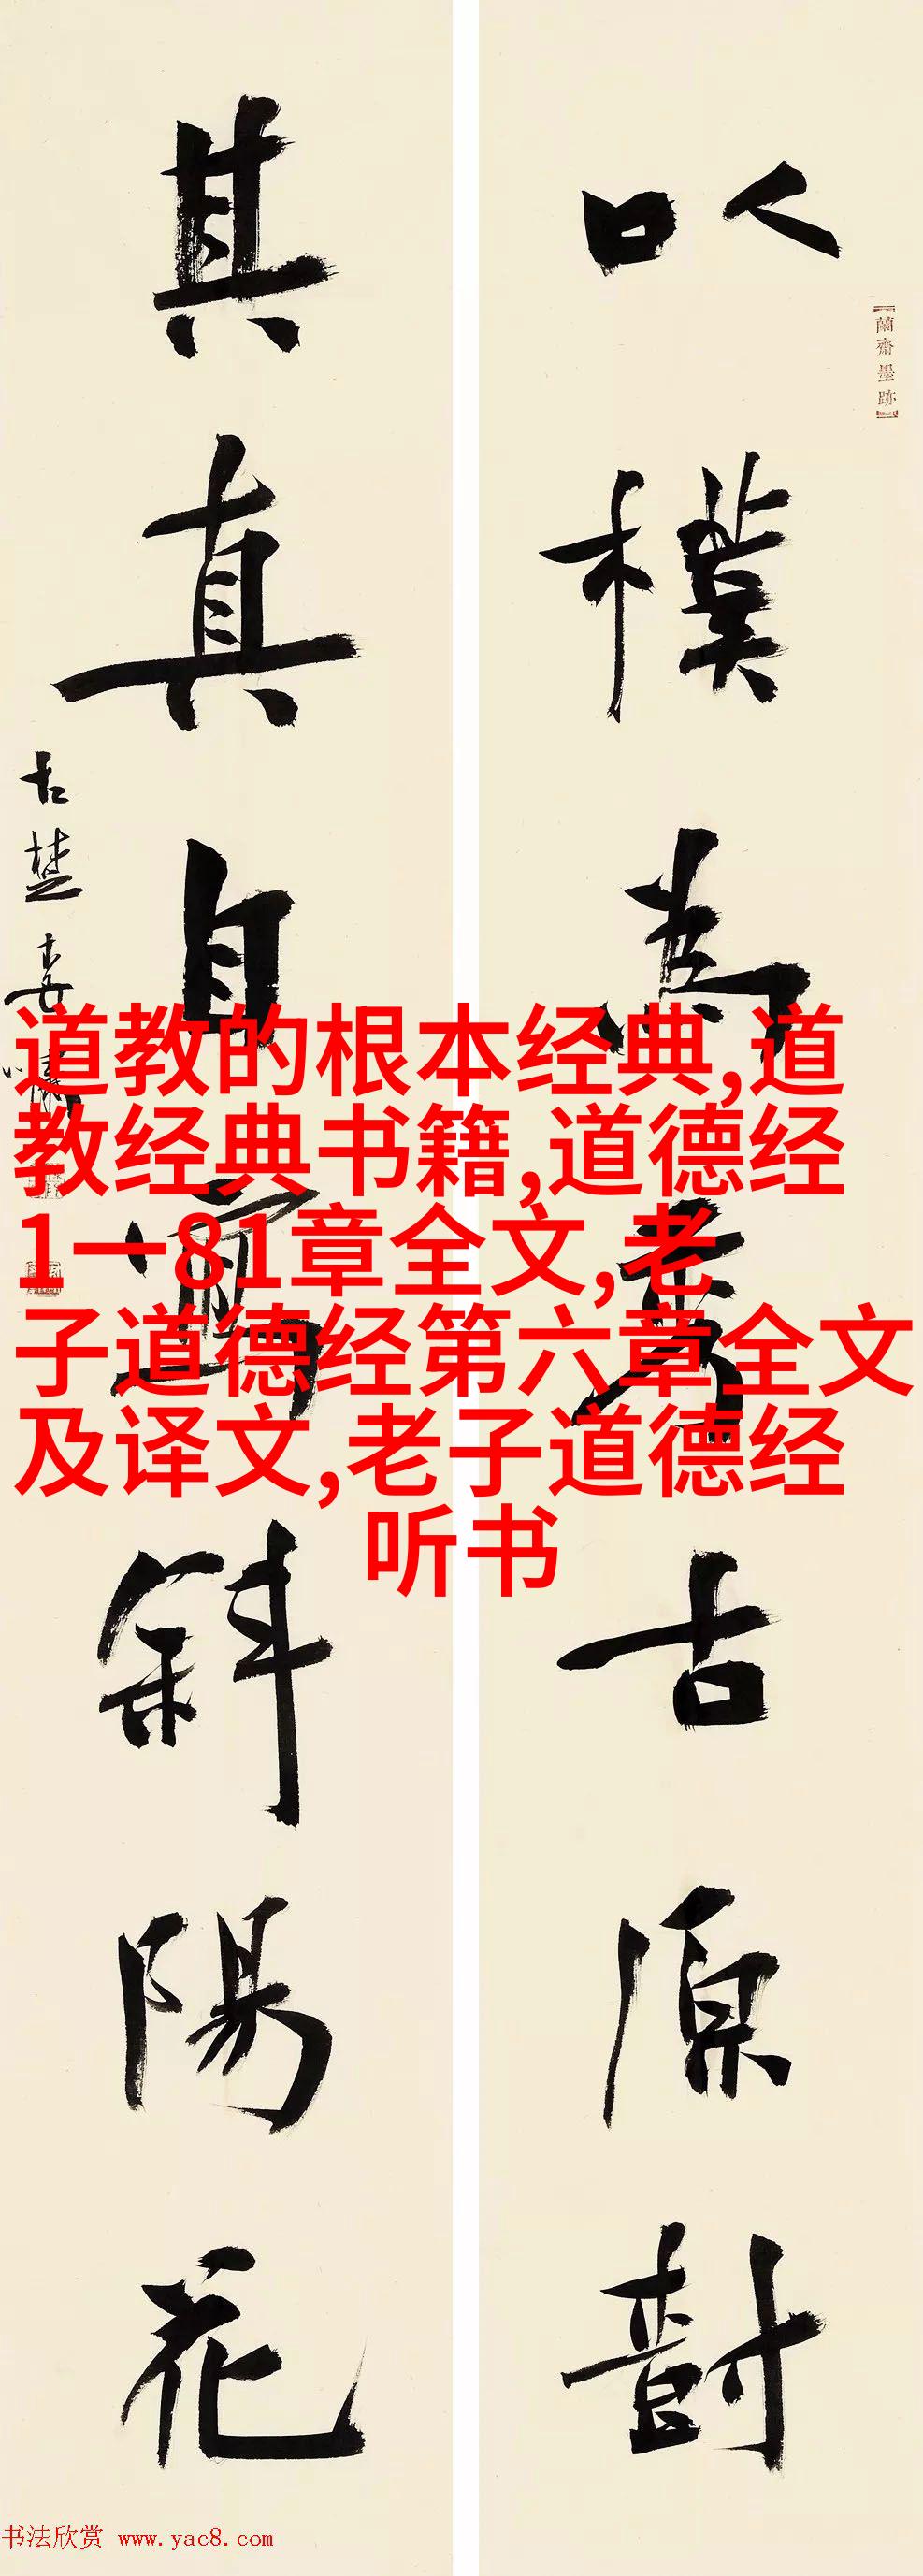 以樸為秀古原樹
【蘭齋墨跡】
其真自寫斜陽花
古楚
道教的根本经典,道
教经典书籍,道德经
1一81章全文,老
子道德经第六章全文
及译文,老子道德经
听书
书法欣赏 www.yac8.com